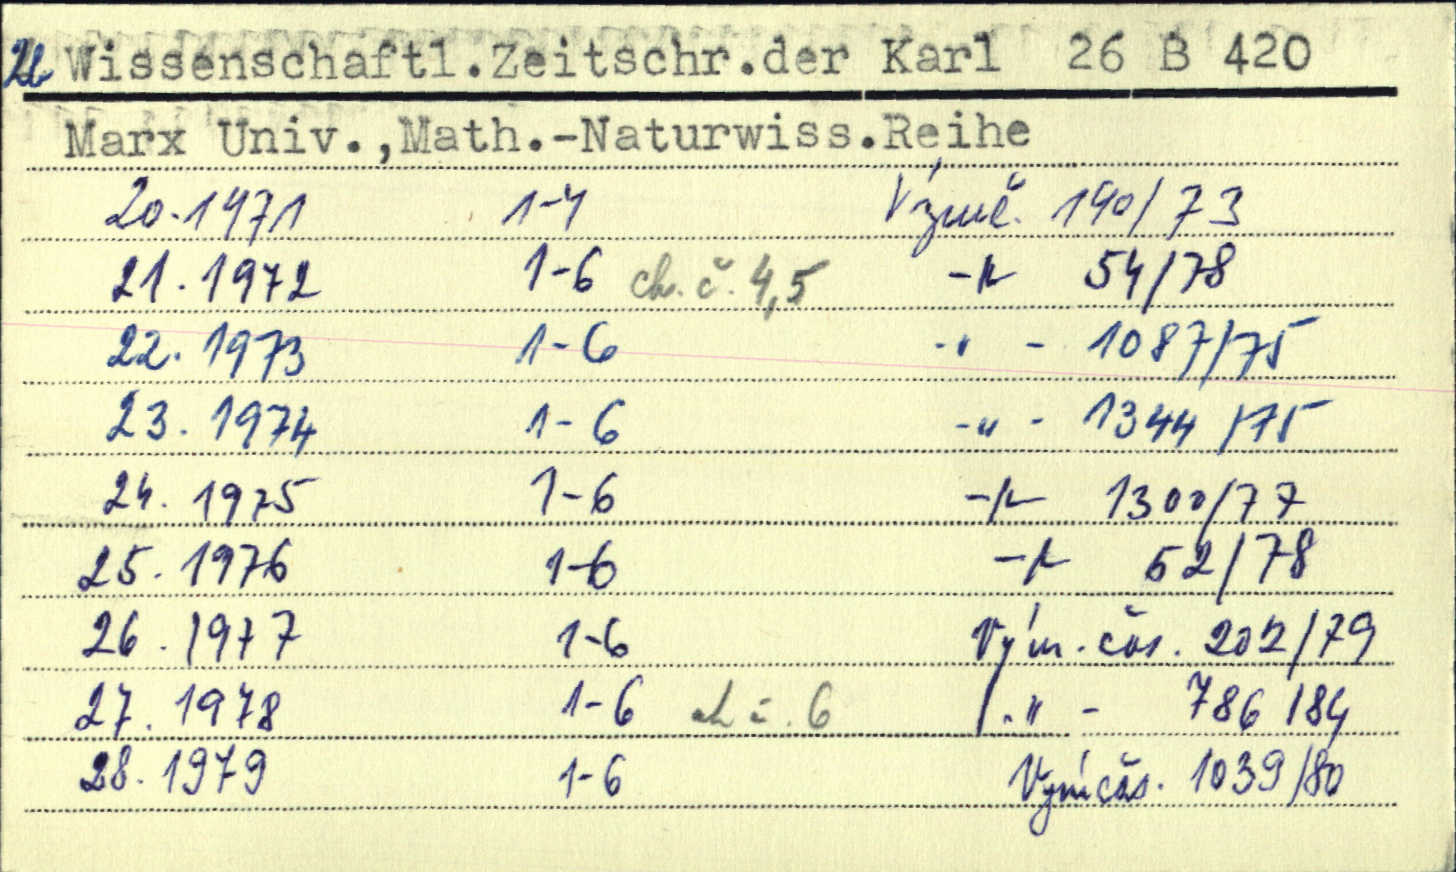 Wissenschaftl.Zeitschr.der Karl 26 B 420
Marx Univ.,Math.-Naturwiss.Reihe
20.1971 1-4 190/73
21.1972 1-6 ch. č. 4,5 -"- 54/78
22.1973 1-6 -"- 1087/75
23.1974 1-6 -"- 1344/75
24.1975 1-6 -"- 1300/77
25.1976 1-6 -"- 52/78
26.1977 1-6 Vým.čas. 202/79
27.1978 1-6 ch č. 6 -"- 786/84
28.1979 1-6 Vým čas. 1039/80